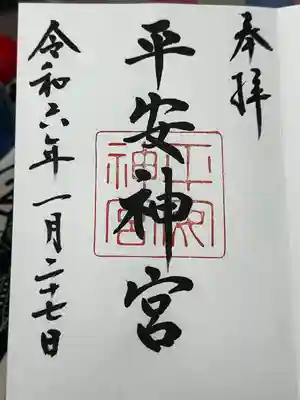 奉拝
平安神宮
平安神宮
令和六年一月二十七日